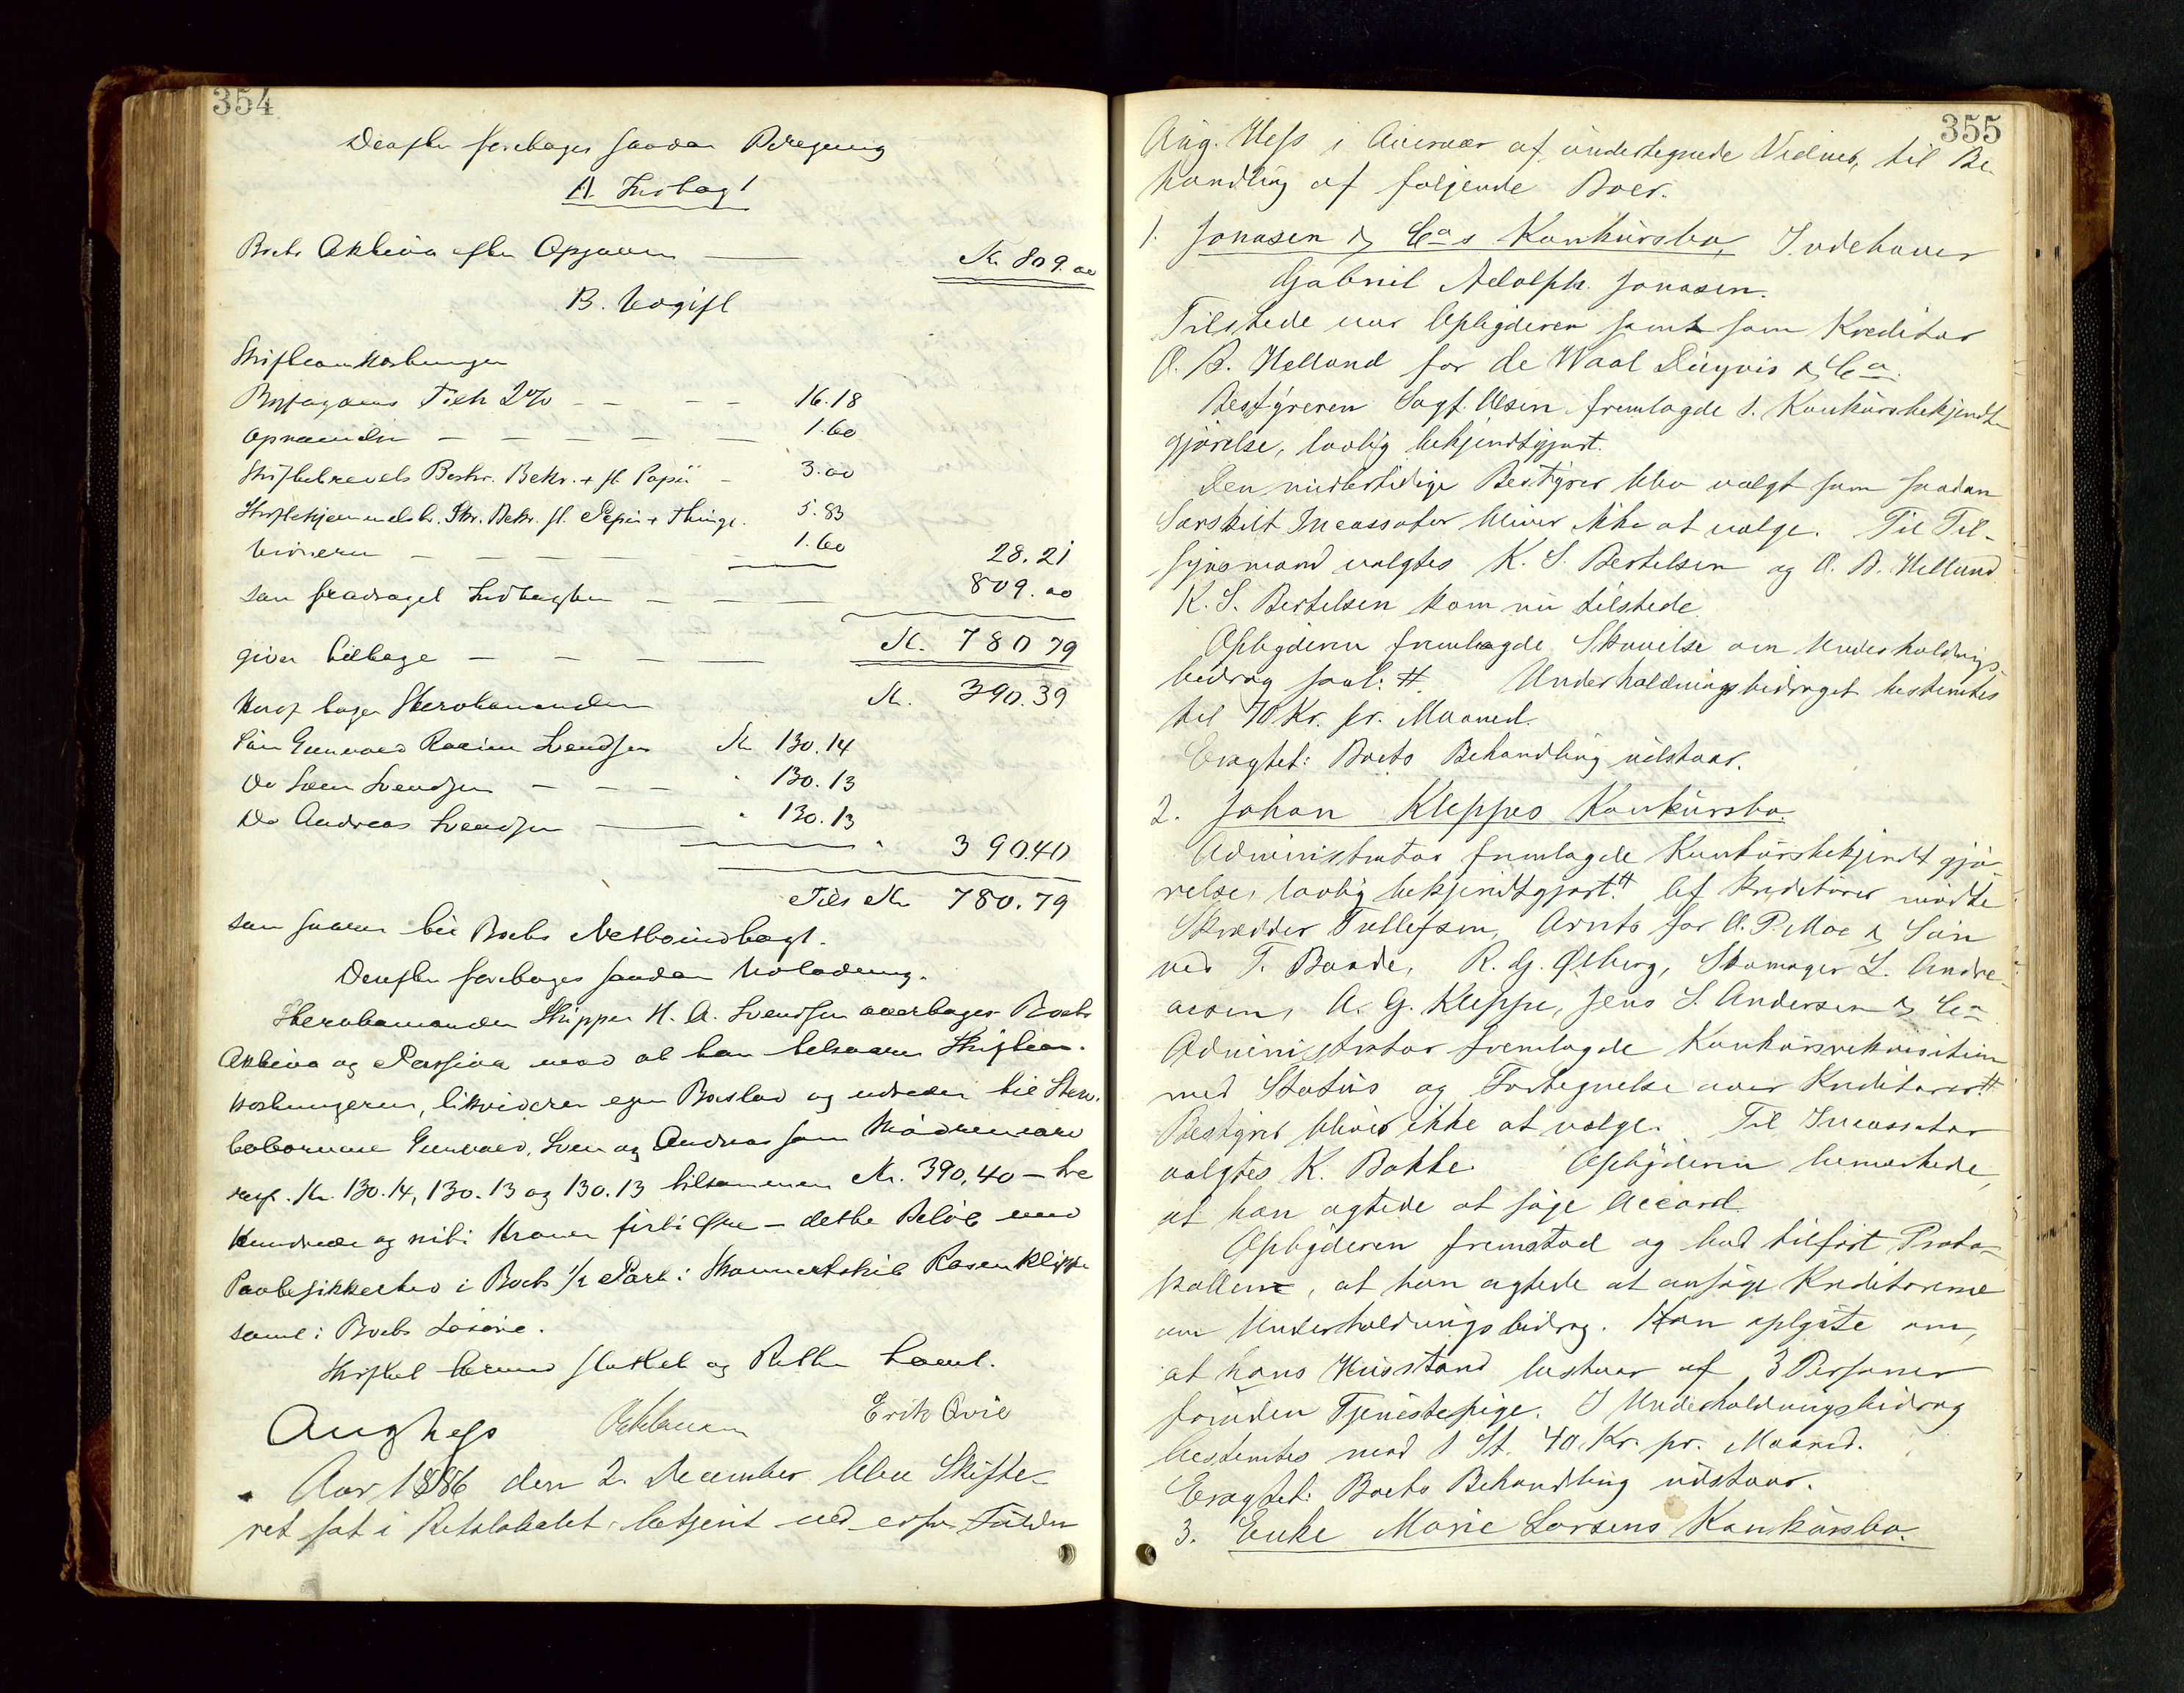 354
Derefter foretages saadan Beregning
A. Indtægt
Boets Aktiva efter Opgaven — Kr. 809.00
B. Udgift
Skifteomkostninger
16.18
Opraaben — — — — — — 1.60
Skiftebrevets Beskr. Bekr. + st Papir — 3.00
Skr. Bekr. st. Papir + Thingl. 5.83
Vidnerne — — — — — 1.60 28.21
som fradraget Indtægten — — — 809.00
giver tilbage — — — — Kr. 780.79
Heraf tager Stervbomanden Kr. 390.39
Søn Gunvald Svendsen Kr. 130.14
Do Sven Svendsen — — — " 130.13
Do Andreas Svendsen — " 130.13
" 390.40
Tils Kr. 780.79
som svarer til Boets Nettoindtægt.
Derefter foretages saadan Udlodning.
Stervbomanden Skipper H. A. Svendsen overtager Boets
Aktiva og Passiva mod at han tilsvarer Skifteom-
kostningerne, likviderer egen Boeslod og udreder til Sterv-
bobørnene Gunvald, Sven og Andreas som Mødrenearv
resp. Kr. 130.14, 130.13 og 130.13 tilsammen Kr. 390,40 — tre
Hundrede og niti Kroner firti Øre — dette Beløb mod
Pantesikkerhed i Boets 1/2 Part i Rosenklippe
samt i Boets Løsøre.
Skiftet dermed sluttet og Retten hævet.
Aug Hess Erik Qvie
Aar 1886 den 2. December blev Skifte-
ret sat i Retslokalet, betjent ved const. Fuldm
355
Aug. Hess i Overvær af undertegnede Vidner, til Be-
handling af følgende Boer.
1. Jonasen & Coas Konkursbo, Indehaver
Gabriel Adolph. Jonasen.
Tilstede var Opbyderen samt som Kreditor
O. B. Helland for de Waal Duyvis & Co.
Bestyreren Sagf. Olsen fremlagde 1. Konkursbekjendt-
gjørelse, lovlig bekjendtgjort.
Den midlertidige Bestyrer blev valgt som saadan
Særskilt Incassator bliver ikke at vælge. Til Til-
synsmænd valgtes K. S. Bertelsen og O. B. Helland.
K. S. Bertelsen kom nu tilstede
Opbyderen fremlagde Skrivelse om Underholdnings-
bidrag saal: #. Underholdningsbidraget bestemtes
til 70 Kr. pr. Maaned.
Eragtet: Boets Behandling udstaar.
2. Johan Kleppes Konkursbo.
Administrator fremlagde Konkursbekjendtgjø-
relse, lovlig bekjendtgjort #. Af Kreditorer mødte
Skrædder Tollefsen, Arnts for O. P. Moe & Søn
ved T. Baade, R. G. Østberg, Skomager L. Andre-
assen, A. G. Kleppe, Jens S. Andersen & Co
Administrator fremlagde Konkursrekvisition
med Status og Fortegnelse over Kreditorer #.
Bestyrer bliver ikke at vælge. Til Incassator
valgtes K. Bakke. Opbyderen bemærkede,
at han agtede at søge Accord.
Opbyderen fremstod og bad tilført Proto-
kollen, at han agtede at ansøge Kreditorerne
om Underholdningsbidrag. Han oplyste om,
at hans Husstand bestaar af 3 Personer
foruden Tjenestepige. I Underholdningsbidrag
bestemtes mod 1 St. 40 Kr. pr. Maaned.
Eragtet: Boets Behandling udstaar.
3. Enke Marie Larsens Konkursbo.